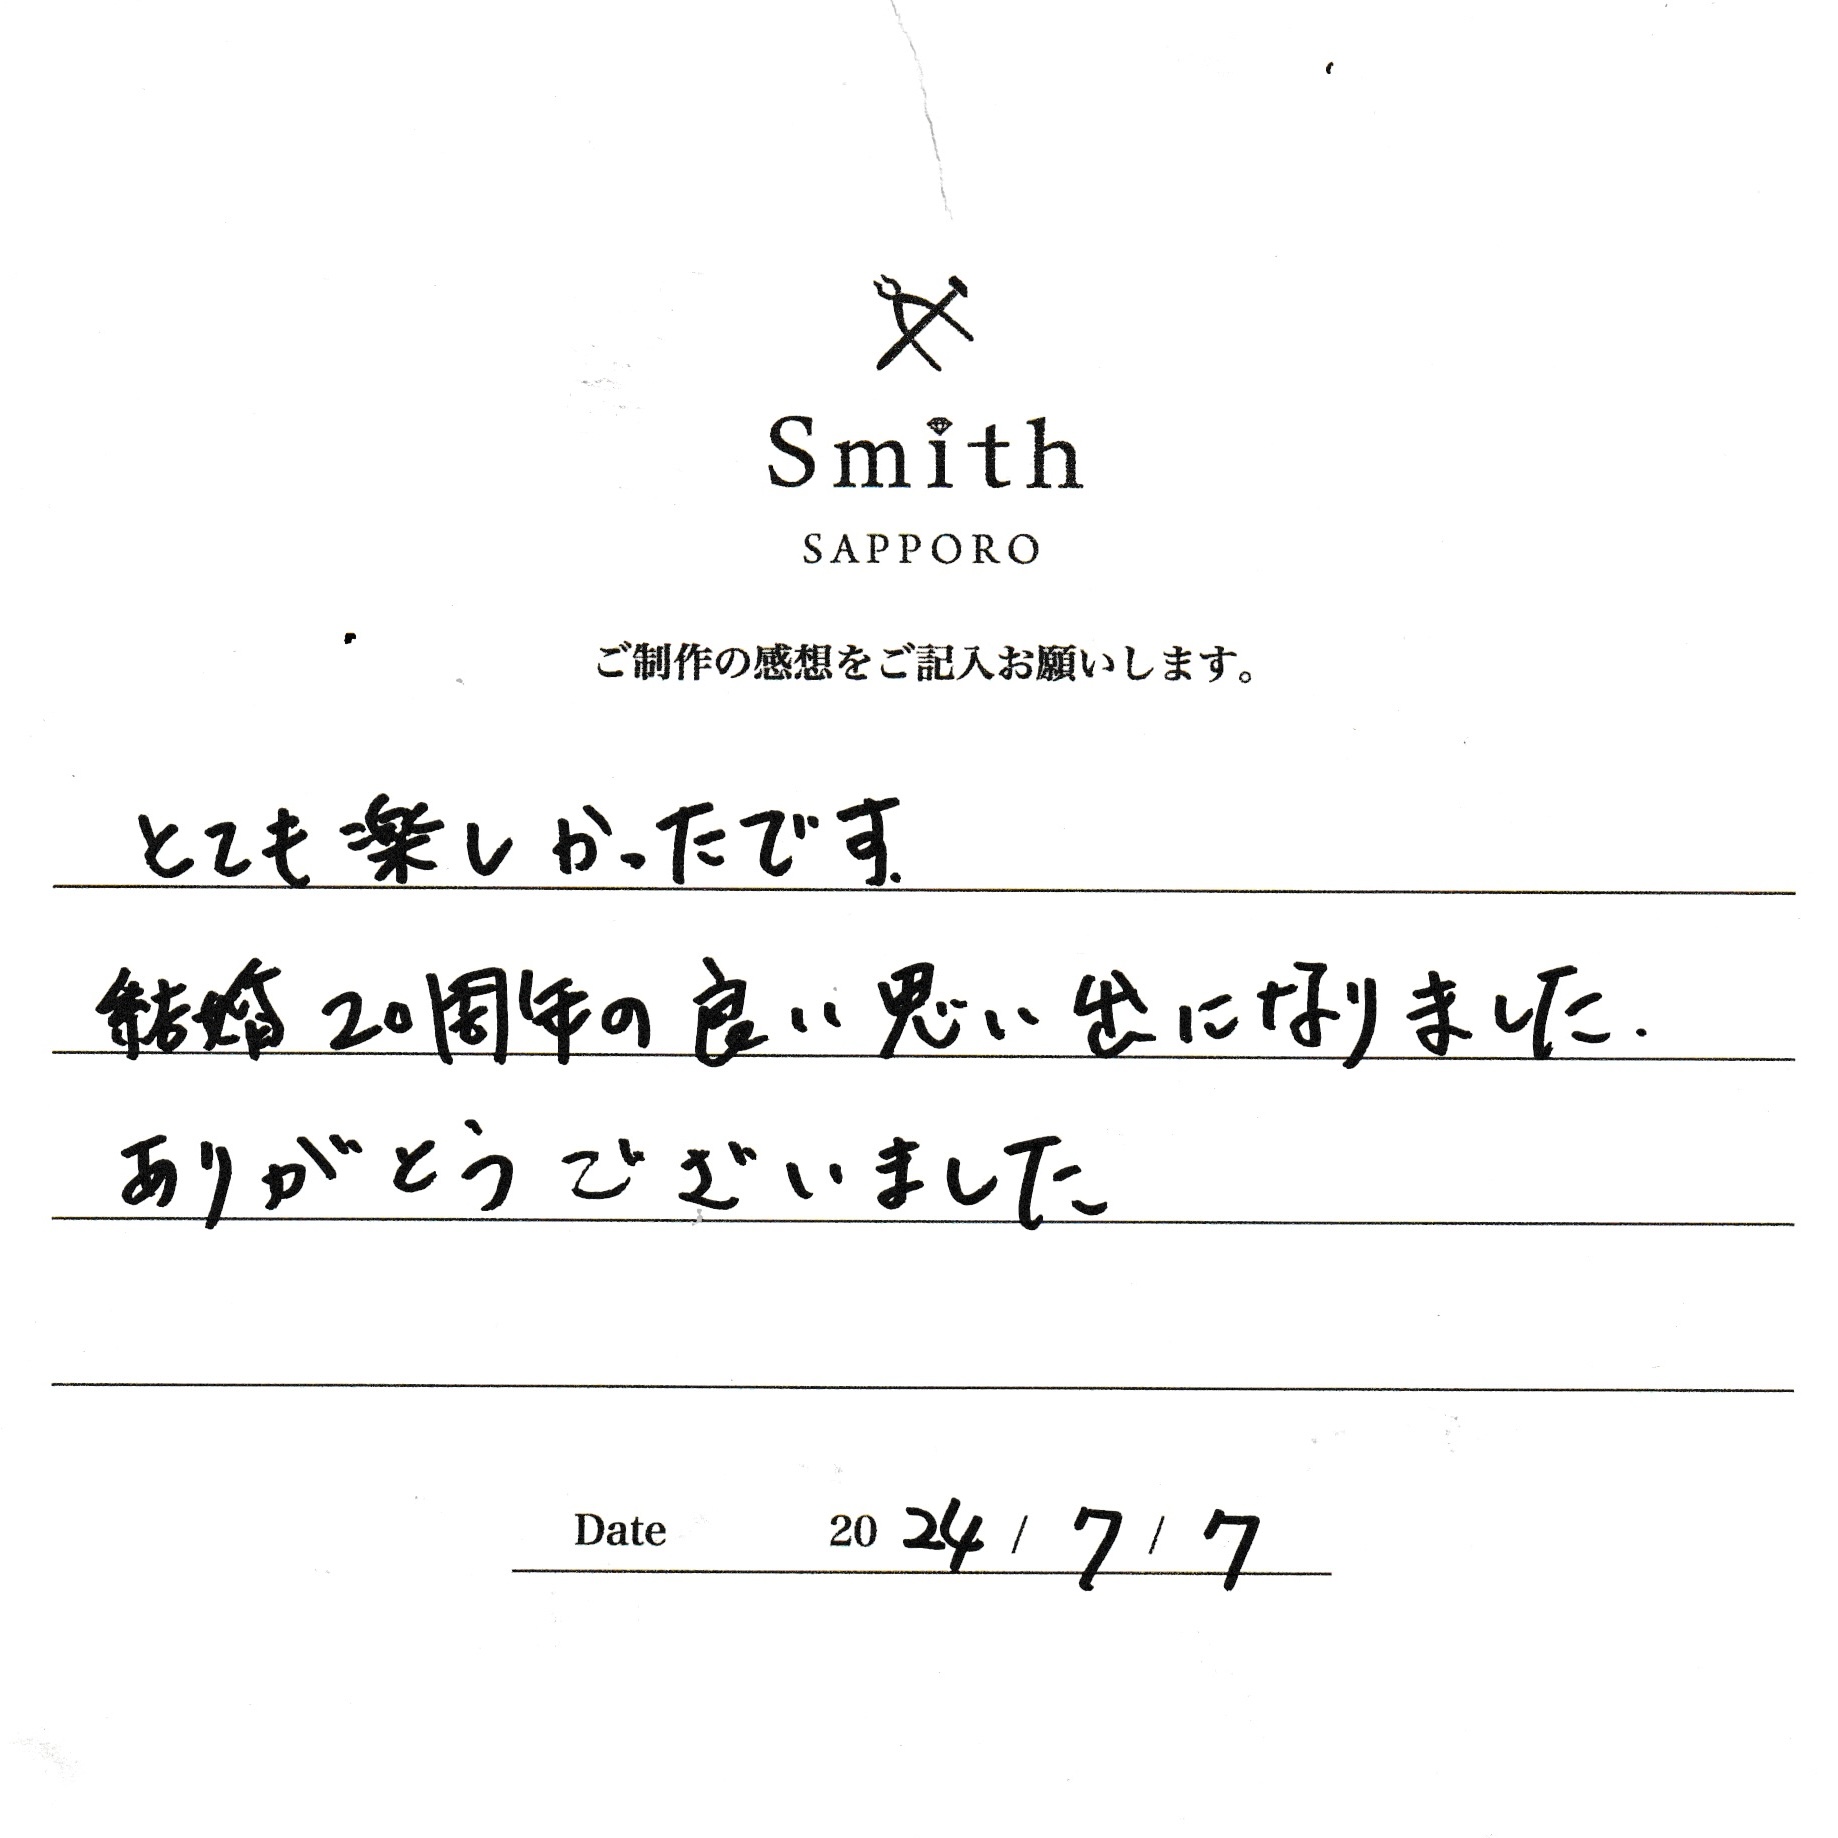 Smith
SAPPORO
ご制作の感想をご記入お願いします。
とても楽しかったです.
結婚20周年の良い思い出になりました.
ありがとうございました
Date 2024 / 7 / 7